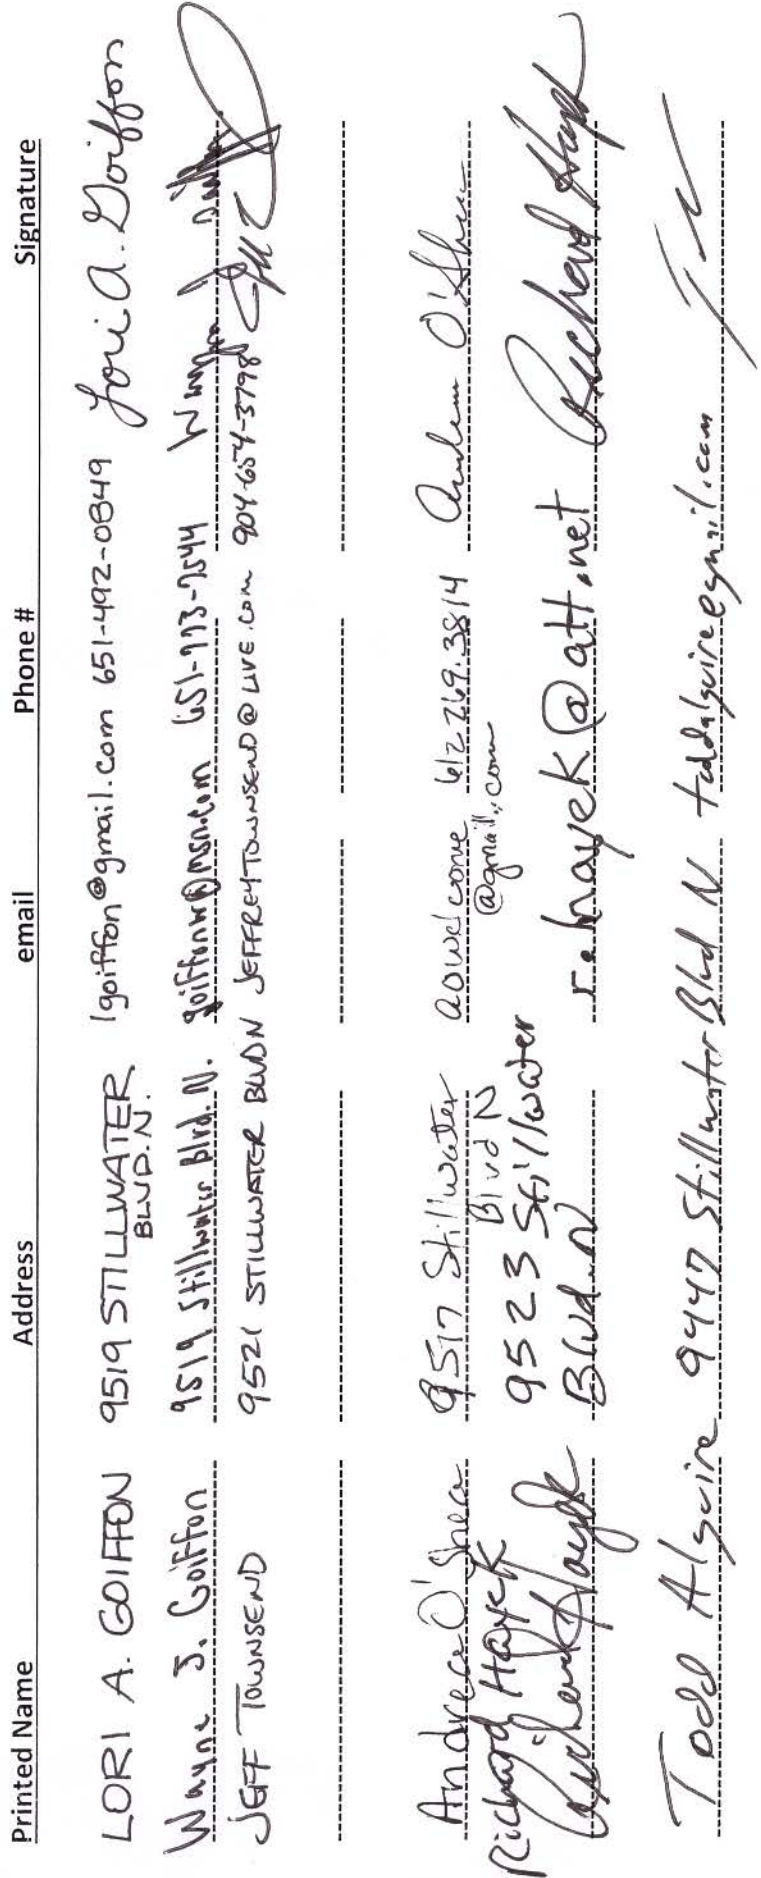 Printed Name Address email Phone # Signature
LORI A. GOIFFON 9519 STILLWATER lgoiffon@gmail.com 651-492-0849 Lori A. Goiffon
BLVD. N.
Wayne J. Goiffon 9519 Stillwater Blvd. N. goiffonw@msn.com Wayne J
JEFF TOWNSEND 9521 STILLWATER BLVD N JEFFREYTOWNSEND@LIVE.com 904-654-3798
Andrea O'Shea 9517 Stillwater aowelcome 612 269.3814 Andrea O'Shea
Blvd N @gmail.com
Richard Hayek 9523 Stillwater
Richard Hayek Blvd. N r.hayek@att.net Richard Hayek
Todd Alguire 9447 Stillwater Blvd N toddalguire@gmail.com